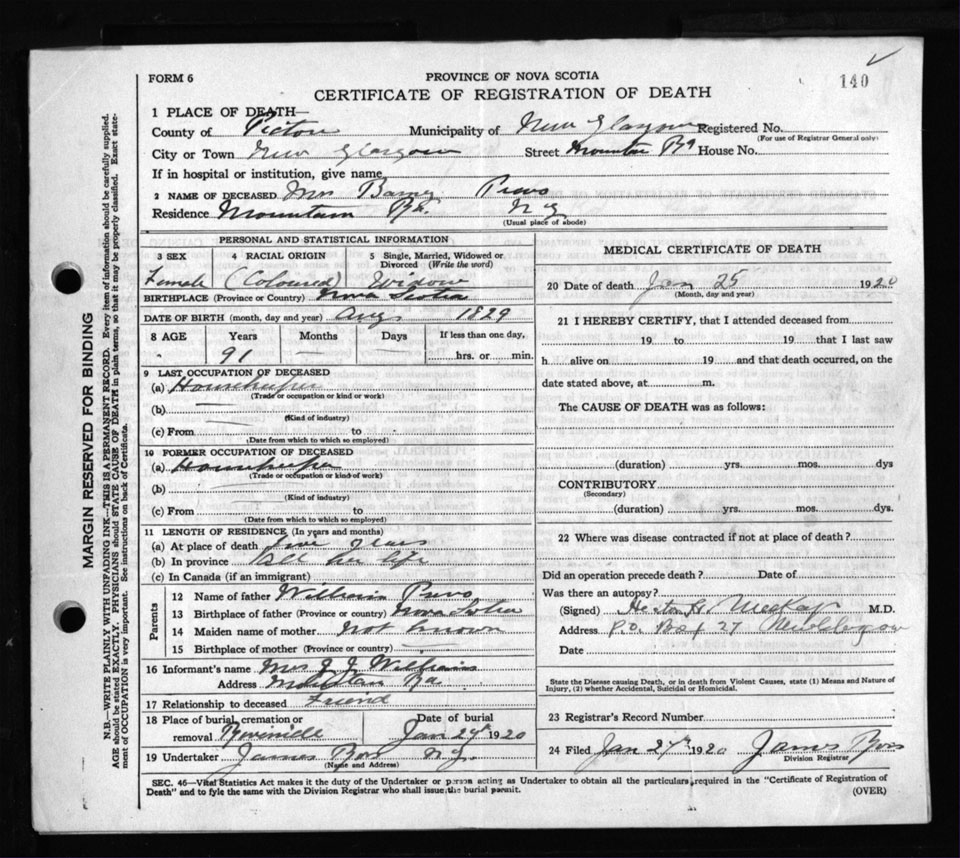 FORM 6
PROVINCE OF NOVA SCOTIA
140
CERTIFICATE OF REGISTRATION OF DEATH
1 PLACE OF DEATH—
County of Pictou Municipality of New Glasgow Registered No.
(For use of Registrar General only)
City or Town New Glasgow Street Mountain Rd House No.
If in hospital or institution, give name
2 NAME OF DECEASED Mrs Barney
Residence Mountain Rd. N G
(Usual place of abode)
PERSONAL AND STATISTICAL INFORMATION
3 SEX 4 RACIAL ORIGIN 5 Single, Married, Widowed or Divorced (Write the word)
Female (Coloured) Widow
BIRTHPLACE (Province or Country) Nova Scotia
DATE OF BIRTH (month, day and year) Aug 1829
8 AGE Years Months Days If less than one day,
91 — — hrs. or min.
9 LAST OCCUPATION OF DECEASED
(a) Housekeeper
(Trade or occupation or kind or work)
(b)
(Kind of industry)
(c) From to
(Date from which to which so employed)
10 FORMER OCCUPATION OF DECEASED
(a) Housekeeper
(Trade or occupation or kind of work)
(b)
(Kind of industry)
(c) From to
(Date from which to which so employed)
11 LENGTH OF RESIDENCE (In years and months)
(a) At place of death years
(b) In province All her life
(c) In Canada (if an immigrant)
Parents
12 Name of father William
13 Birthplace of father (Province or country) Nova Scotia
14 Maiden name of mother Not known
15 Birthplace of mother (Province or country) —
16 Informant's name Mrs J J Williams
Address Mountain Rd
17 Relationship to deceased Friend
18 Place of burial, cremation or removal Date of burial
Riverside Jan 27 1920
19 Undertaker James N.G.
(Name and Address)
MEDICAL CERTIFICATE OF DEATH
20 Date of death Jan 25 1920
(Month, day and year)
21 I HEREBY CERTIFY, that I attended deceased from
19 to 19 that I last saw
h alive on 19 and that death occurred, on the
date stated above, at m.
The CAUSE OF DEATH was as follows:
(duration) yrs. mos. dys
CONTRIBUTORY
(Secondary)
(duration) yrs. mos. dys.
22 Where was disease contracted if not at place of death?
Did an operation precede death? Date of
Was there an autopsy?
(Signed) McKay M.D.
Address P.O. Box 27 New Glasgow
Date
State the Disease causing Death, or in death from Violent Causes, state (1) Means and Nature of
Injury, (2) whether Accidental, Suicidal or Homicidal.
23 Registrar's Record Number
24 Filed Jan 27th 1920 James
Division Registrar
SEC. 46—Vital Statistics Act makes it the duty of the Undertaker or person acting as Undertaker to obtain all the particulars required in the "Certificate of Registration of
Death" and to fyle the same with the Division Registrar who shall issue the burial permit.
(OVER)
MARGIN RESERVED FOR BINDING
N.B.—WRITE PLAINLY WITH UNFADING INK—THIS IS A PERMANENT RECORD. Every item of information should be carefully supplied.
AGE should be stated EXACTLY. PHYSICIANS should STATE CAUSE OF DEATH in plain terms, so that it may be properly classified. Exact statement of OCCUPATION is very important. See instructions on back of Certificate.